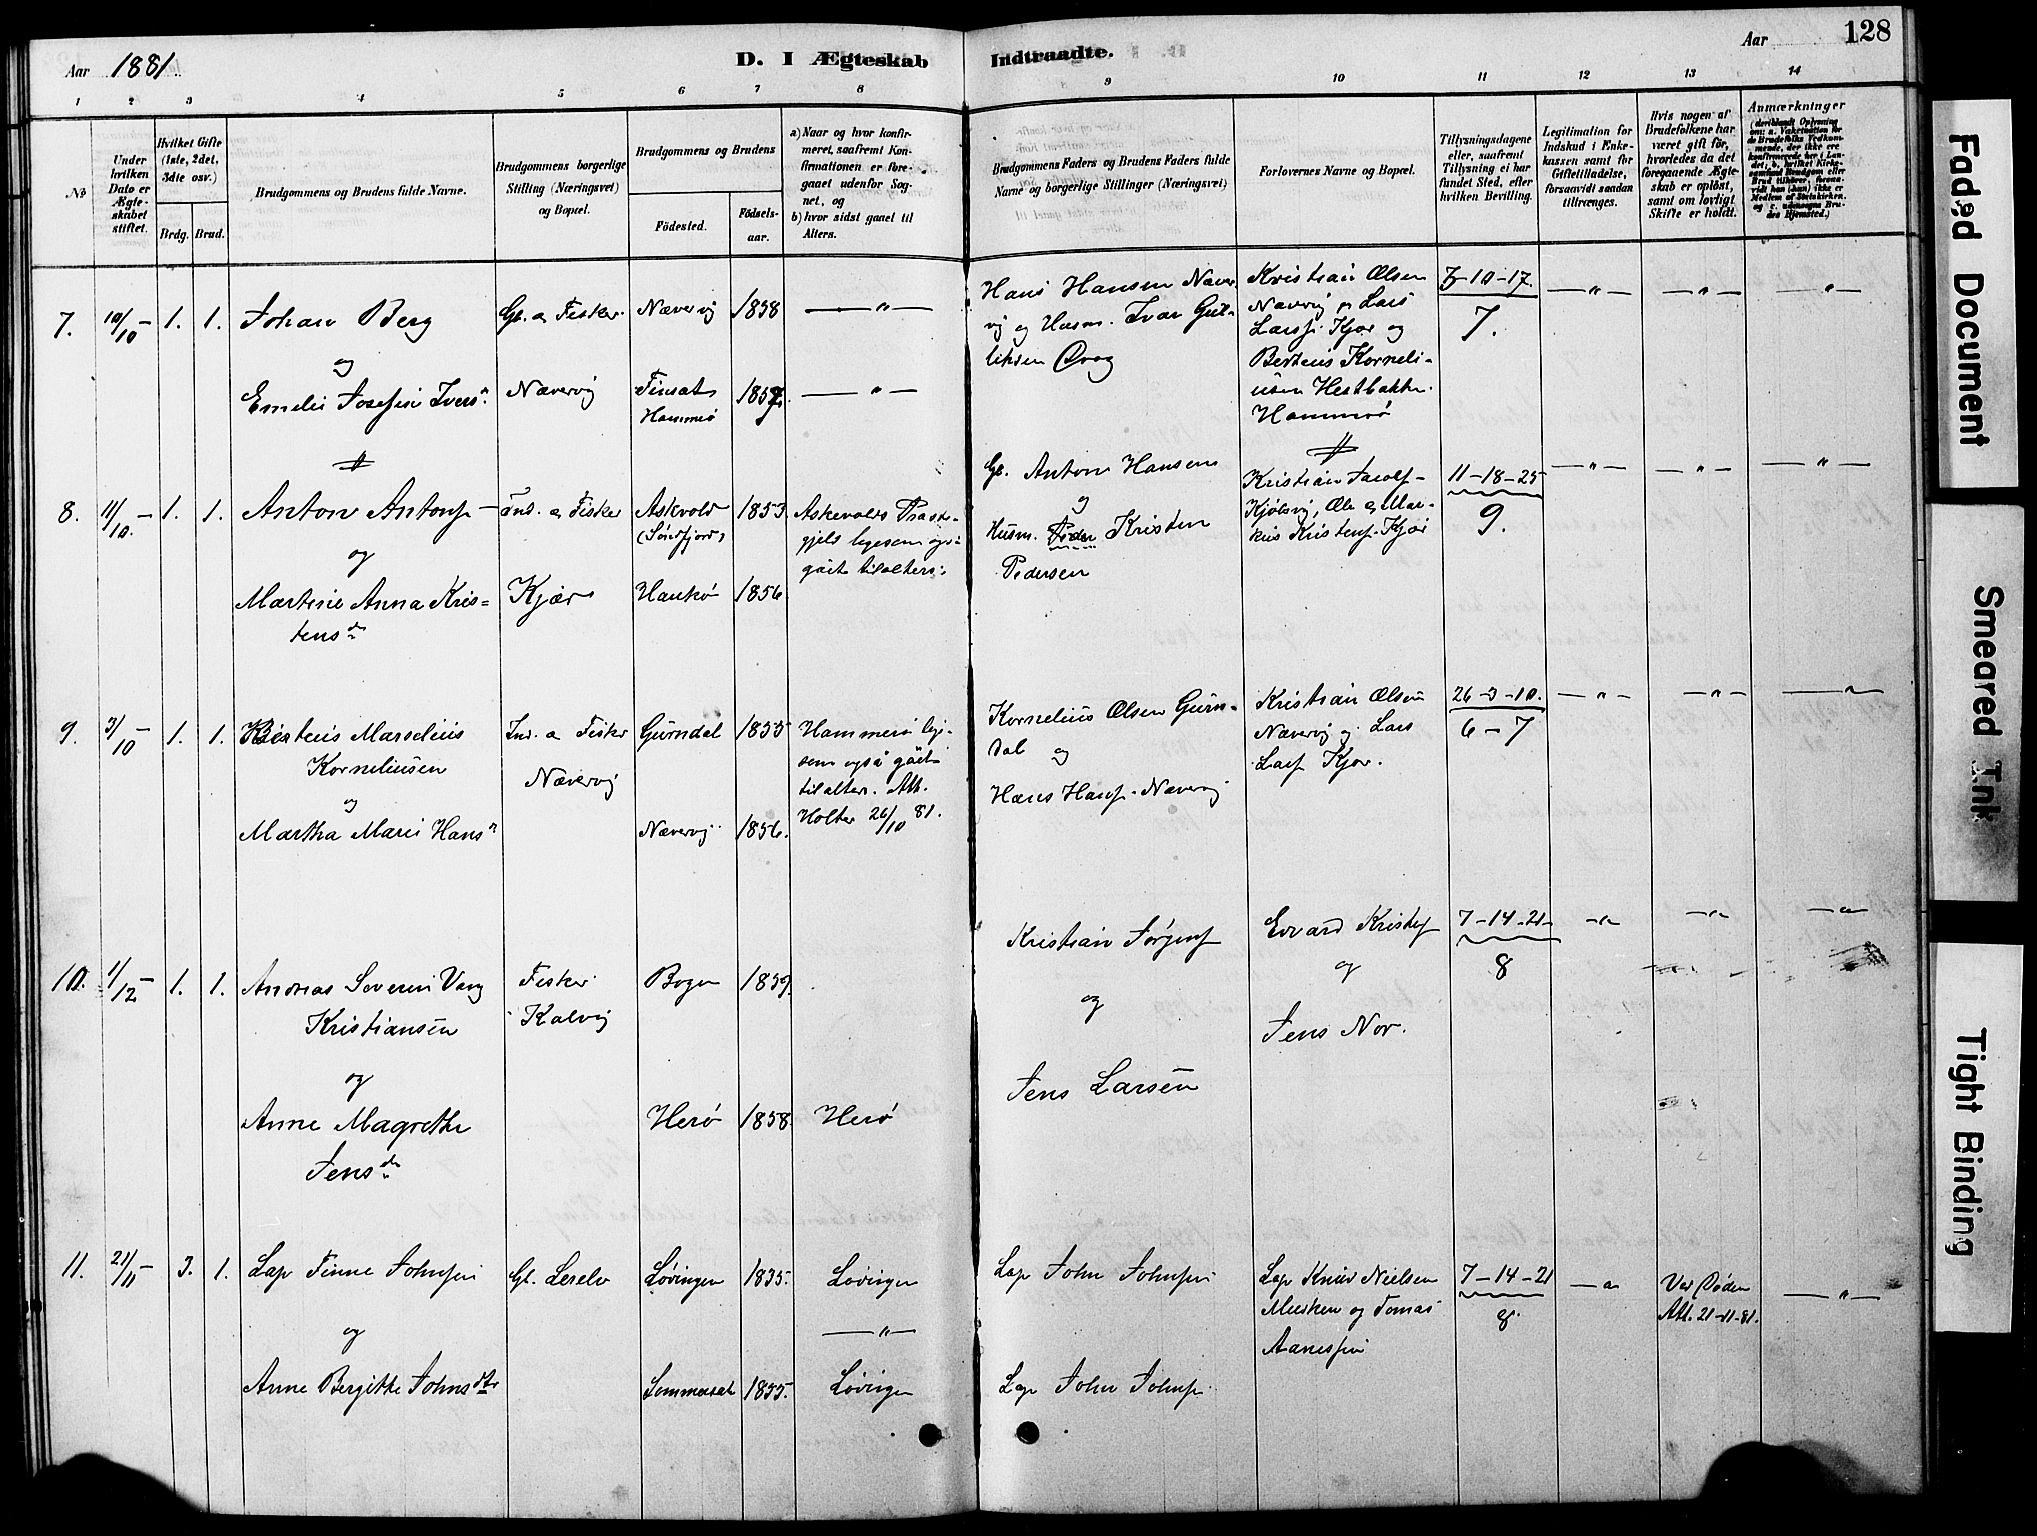 Aar 1881.
D. I Ægteskab Indtraadte.
Aar 128
1 2 3 4 5 6 7 8 9 10 11 12 13 14
No
Under hvilken Dato er Ægteskabet stiftet.
Hvilket Gifte (1ste, 2det, 3die osv.)
Brdg. Brud.
Brudgommens og Brudens fulde Navne.
Brudgommens borgerlige Stilling (Næringsvei) og Bopæl.
Brudgommens og Brudens
Fødested.
Fødsels-aar.
a) Naar og hvor konfirmeret, saafremt Konfirmationen er foregaaet udenfor Sognet, og
b) hvor sidst gaaet til Alters.
Brudgommens Faders og Brudens Faders fulde Navne og borgerlige Stillinger (Næringsvei)
Forlovernes Navne og Bopæl.
Tillysningsdagene eller, saafremt Tillysning ei har fundet Sted, efter hvilken Bevilling.
Legitimation for Indskud i Enkekassen samt for Giftetilladelse, forsaavidt saadan tiltrænges.
Hvis nogen af Brudefolkene har været gift før, hvorledes da det foregaaende Ægteskab er opløst, samt om lovligt Skifte er holdt.
Anmærkninger
7. 10/10 – 1. 1. Johan Berg
og
Emelie Josefin Ivers
Gb. a Fisker. Nævervig
Nævervig 1858 — " —
Hammerø — " —
Hans Hansen Næver
vig og Husm. Ivar Gul-
liksen
Kristian Olsen
Nævervig og Lars
Larss. Kjær og
Korneli-
usen Hestbakken.
Hammerø
7-10-17.
7.
— " — — " — — " —
8. 11/10. – 1. 1. Anton Antons. –
og
Martine Anna Kris-
tensd
Ind. a Fisker
Kjær
Askvold 1853.
(Søndfjord)
1856
Askevolds Præste-
gjeld ligesom og-
gået til alters.
Gb. Anton Hansen
og
Husm. Peder Kristen
Pedersen
Kristian
Ole og Mar-
kus Kristens. Kjær
11-18-25
9.
— " — — " — — " —
9. 3/10 – 1. 1. Marselius
Kornelius̄en
og
Martha Marie Hans
Ind. a Fisker
Nævervig
1855
Nævervig. 1856.
Hammerø lige-
som også gået
til alters. Att.
Holter 26/10 81.
Kornelius Olsen
dal og
Hans Hans. Nævervig
Kristian Olsen
Nævervig og Lars
Lars. Kjær.
26-3-10.
6-7
— " — — " — — " —
10. 1/12 – 1. 1. Andreas Severin Vang
Kristiansen
og
Anne Magrethe
Jensd
Fisker
Kalvig
Bogen 1859.
Herø 1858. Herø
Kristian Jørgens
og
Jens Larsen
Edvard
og
Jens Nor.
7-14-21-
8
— " — — " — — " —
11. 21/11 – 3. 1. Lap Finne Johnsen
og
Anne Bergitte Johnsdtr
Gb.
Lødingen 1835. Lødingen
— " —
Sommerset 1855. Lødingen
Lap John Johnsen
Lap John Johns.
Lap Knud Nielsen
Musken og Tomas
7-14-21
8.
Ved Døden
Att. 21-11-81.
— " —
Faded Document
Smeared Ink
Tight Binding